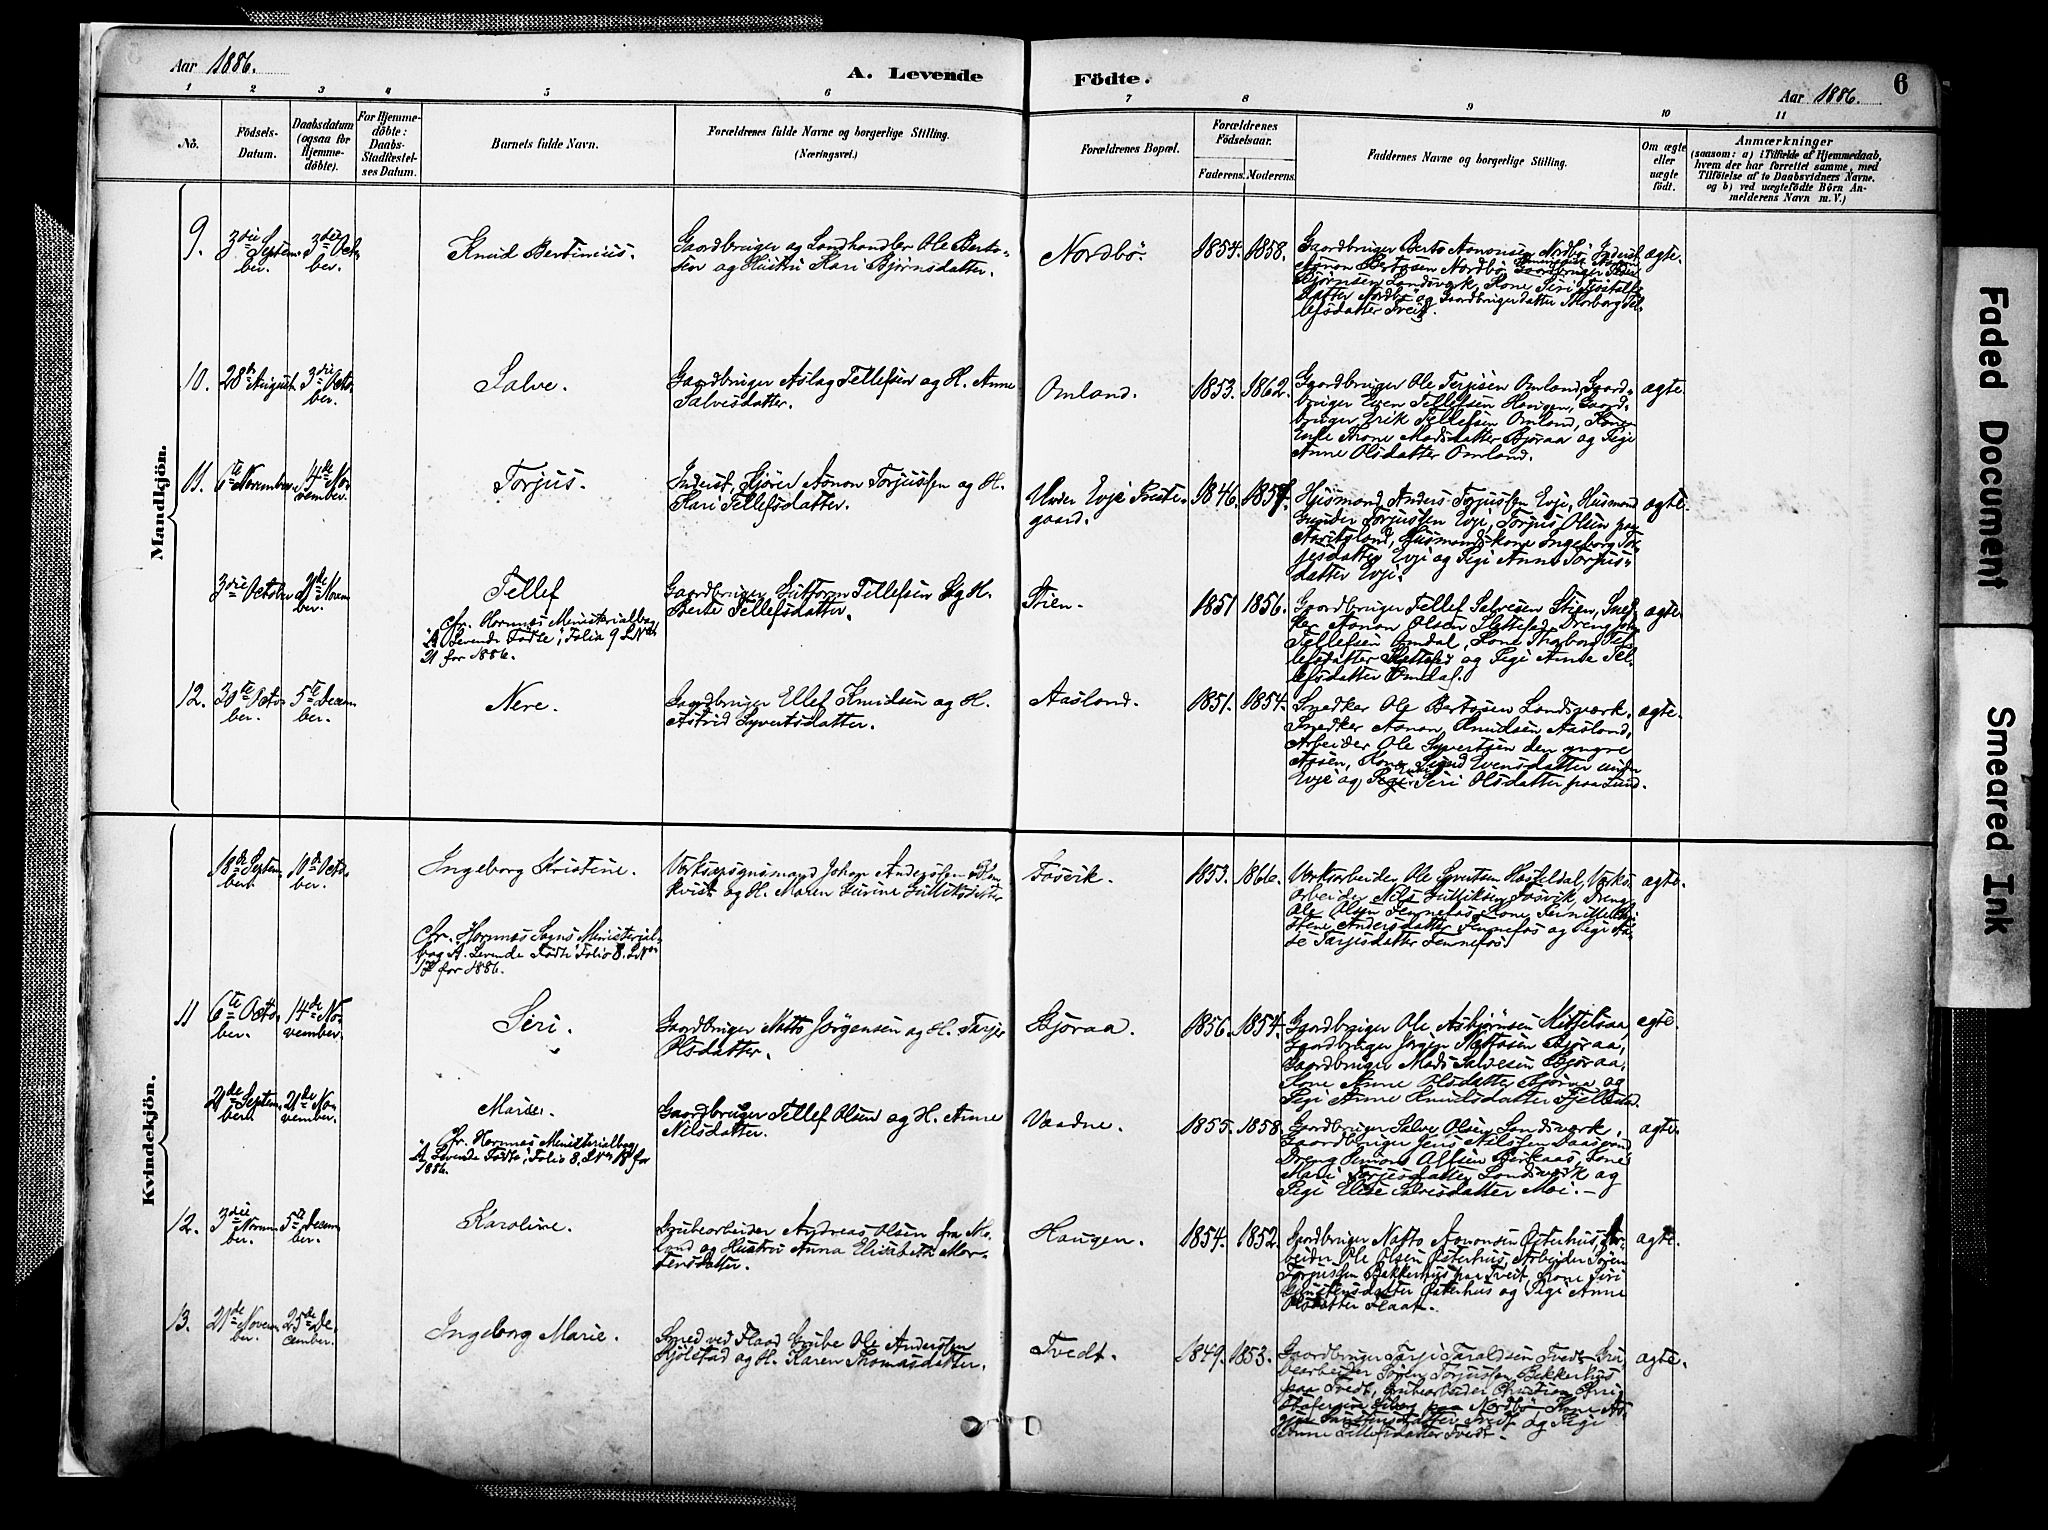 Aar 1886.
A. Levende
Födte.
Aar 1886.
6
1 2 3 4 5 6 7 8 9 10 11
No.
Födsels-
Datum.
Daabsdatum
(ogsaa for
Hjemme-
döbte).
For Hjemme-
döbte:
Daabs-
Stadfæstel-
ses Datum.
Barnets fulde Navn.
Forældrenes fulde Navne og borgerlige Stilling.
(Næringsvei.)
Forældrenes Bopæl.
Forældrenes
Födselsaar.
Faderens.
Moderens.
Faddernes Navne og borgerlige Stilling.
Om ægte
eller
uægte
födt.
Anmærkninger
(saasom: a) i Tilfælde af Hjemmedaab,
hvem der har forrettet samme, med
Tilföielse af to Daabsvidners Navne.
og b) ved uægtefödte Börn An-
melderens Navn m. V.)
Mandkjön.
9.
3die Septem-
ber.
3die Octo-
ber.
Knud Bertinius.
Gaardbruger og Landhandler Ole Berto-
sen og Hustru Kari Bjørnsdatter.
Nordbö.
1854. 1858.
Gaardbruger Berto Aanonsen Nordbö, Inderst
Aanon Bertosen Nordbö, Gaardbruger Peder
Bjørnsen Landsværk, Kone Siri
datter Nordbö og Gaardbrugerdatter Thorborg Tel-
lefsdatter Tveit.
ægte.
10.
28de August
3die Octo-
ber.
Salve.
Gaardbruger Aslag Tellefsen og H. Anne
Salvesdatter.
Omland.
1853. 1862.
Gaardbruger Ole Terjesen Omland, Gaard-
bruger Even Tellefsen Haugen, Gaard-
bruger Erik Tellefsen Omland, Kone
Enke Thone Madsdatter Bjøraa og Pige
Anne Olsdatter Omland.
ægte.
11.
6te November
14de No-
vember.
Torjus.
Inderst, Kjører Aanon Torjussen og H.
Kari Tellefsdatter.
Under Evje Præste-
gaard.
1846. 1857.
Husmand Anders Torjussen Evje, Husmand
Gunder Torjussen Evje, Torjus Olsen paa
Husmandskone Ingeborg Tor-
jesdatter Evje og Pige Anne Torjus-
datter Evje.
ægte.
3die October
21de Novem
ber.
Tellef
cfr. Hornnes Ministerialbog,
"A Levende Födte", Folio 9 L.No
21 for 1886.
Gaardbruger Guttorm Tellefsen og H.
Berte Tellefsdatter.
Stien.
1851 1856.
Gaardbruger Tellef Salvesen Stien, Sned-
ker Aanon Olsen Dreng
Tellefsen Omdal, Kone Thorborg Tel-
lefsdatter og Pige Anne Tel-
lefsdatter Omdal.
ægte.
12.
30te Octo-
ber.
5te Decem-
ber.
Nere.
Gaardbruger Ellef Knudsen og H.
Astrid Syvertsdatter.
Aasland.
1851. 1854.
Snedker Ole Bertosen Landsværk,
Snedker Aanon Knudsen Aasland,
Arbeider Ole Syvertsen den yngre
Aasen, Kone Sigrid Evensdatter under
Evje og Pige Siri Olsdatter paa Lund.
ægte.
Kvindekjön.
18de Septem-
ber.
10de Octo-
ber.
Ingeborg Kristine.
cfr. Hornnes Sogns Ministerial-
bog A. Levende Födte, Folio 8. L.No
17 for 1886.
Verksbrugsmand Johan Andersen Blom-
kvist og H. Maren Gurine Gulliksdatter
Fosvik.
1853. 1866.
Verksarbeider Ole Syvertsen Hasseldal, Verks-
arbeider Nils Gulliksen Fosvik, Dreng
Ole Olsen Fennefos, Kone Pernille Chri-
stine Andersdatter Fennefos og Pige
Tarjesdatter Fennefos
ægte.
11
6te Octo-
ber.
14de No-
vember.
Siri.
Gaardbruger Natto Jörgensen og H. Tarjer
Olsdatter.
Bjøraa.
1856. 1854.
Gaardbruger Ole Asbjørnsen
Gaardbruger Jørgen Nattosen Bjøraa,
Gaardbruger Mads Salvesen Bjøraa,
Kone Anne Olsdatter Bjøraa og
Pige Anne Knudsdatter Fjellestad.
ægte.
21de Septem-
ber.
21de No-
vember.
Marie.
cfr. Hornnes Ministerialbog,
"A Levende Födte", Folio 8, L.No 18 for
1886.
Gaardbruger Tellef Olsen og H. Anne
Nilsdatter.
Vaadne.
1855. 1858.
Gaardbruger Salve Olsen Landsværk,
Gaardbruger Jens Nilsen
Dreng Simon Olsen Birkaas, Kone
Mari Torjesdatter Landsværk og
Pige Elise Salvesdatter Moi.
ægte.
12.
3die Novem-
ber.
5te Decem-
ber.
Karoline.
Grubearbeider Andreas Olsen fra Mo-
land og Hustru Anna Elisabeth Mor-
tensdatter.
Haugen.
1854. 1852.
Gaardbruger Natto Aanonsen Østerhus, Ar-
beider Ole Olsen Østerhus, Arbeider Søren
Torjussen Bakkerhus paa Tveit, Kone Siri
Østerhus og Pige Anne
Olsdatter Flaat.
ægte.
13.
21de Novem-
ber.
25de De-
cember.
Ingeborg Marie.
Smed ved Flaad Grube Ole Andersen
Kjølstad og H. Karen Thomasdatter.
Tvedt.
1849. 1853.
Gaardbruger Tarje Taraldsen Tvedt, Gru-
bearbeider Søren Torjussen Bakkerhus
paa Tvedt, Grubearbeider Christian Chri-
stofersen paa Nordbö, Kone
datter Tvedt og Pige
Anne Tellefsdatter Tvedt.
ægte.
Faded Document
Smeared Ink